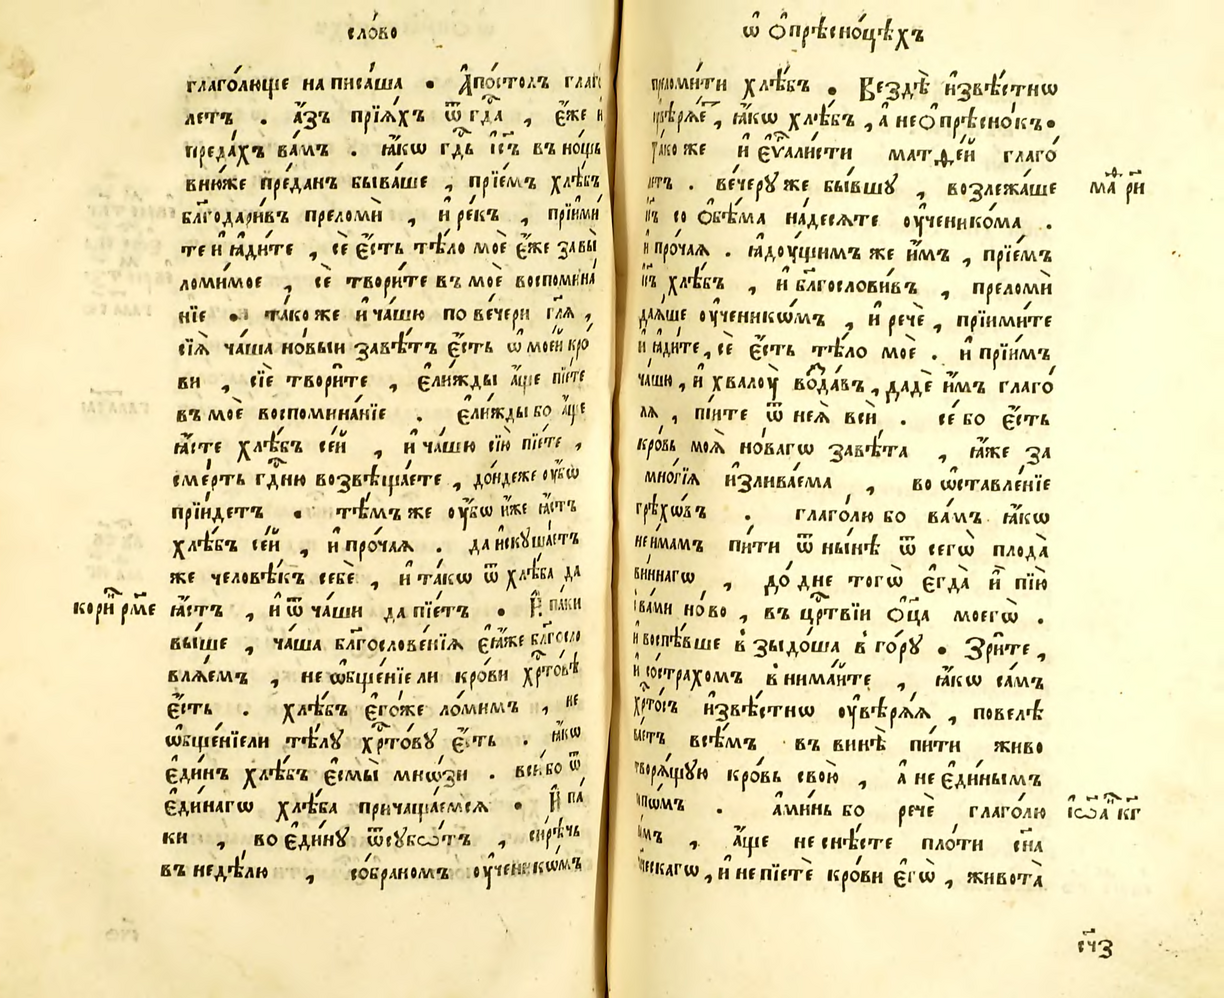 сло́во
глаго́люще на писа́ша . А҆по́столъ
летъ . а҆́зъ прїѧ́хъ ѿ гд҇а , є҆́же и҆
преда́хъ ва́мъ . ꙗ҆́кѡ гд҇ь і҆с҃ъ въ но́щь
вню́же пре́данъ быва́ше , прїе́мъ хлѣ́бъ
бл҃годари́въ преломѝ , и҆ ре́къ , прїими́
те и҆ ꙗ҆ди́те , сѐ є҆́сть тѣ́ло моѐ є҆́же завы̀
ломи́мое , сѐ твори́те въ моѐ воспомина́
нїе . та́ко же и҆ ча́шю по ве́чери гл҃ѧ ,
сїѧ̀ ча́ша но́выи завѣ́тъ є҆́сть ѡ҆ мое́й кро́
ви , сїѐ твори́те , є҆ли́жды а҆́ще пїе́те
въ моѐ воспомина́нїе . є҆ли́жды бо а҆́ще
ꙗ҆́сте хлѣ́бъ се́й , и҆ ча́шю сїю̀ пїе́те ,
сме́рть гд҇ню возвѣща́ете , до́ндеже ᲂу҆́бѡ
прїи́детъ . тѣ́мъ же ᲂу҆́бѡ и҆́же ꙗ҆́стъ
хлѣ́бъ се́й , и҆ про́чаѧ . да и҆скуша́етъ
же человѣ́къ себѐ , и҆ та́кѡ ѿ хлѣ́ба да
кори҇н рм҃е ꙗ҆́стъ , и҆ ѿ ча́ши да пїе́тъ . И҆ па́ки
вы́ше , ча́ша бл҃гослове́нїѧ є҆ѧ́же бл҃госло
влѧ́емъ , не ѡ҆бще́нїе ли кро́ви хр҇то́вѣ
є҆́сть . хлѣ́бъ є҆го́же ло́мимъ , не
ѡ҆бще́нїели тѣ́лꙋ хр҇то́вꙋ є҆́сть . ꙗ҆́кѡ
є҆ди́нъ хлѣ́бъ є҆смы̀ мно́зи . вси́ бо ѿ
є҆ди́нагѡ хлѣ́ба причаща́емсѧ . И҆ па́
ки , во є҆ди́нꙋ ѿ сꙋббѡ́тъ , си́рѣчь
въ недѣ́лю , со́браномъ ᲂу҆ченикѡ́мъ
ѡ҆ ѻ҆прѣсно́цѣхъ
преломи́ти хлѣ́бъ . Вездѣ̀ и҆звѣ́стнѡ
ꙗ҆́кѡ хлѣ́бъ , а҆ не ѻ҆прѣсно́къ .
та́ко же и҆ є҆ѵⷢ҇али́сти матѳе́й глаго́
летъ . ве́черꙋ же бы́вшꙋ , возлежа́ше ма҇ф р҃и
со ѻ҆бѣ́ма на́десѧте ᲂу҆ченико́ма .
и҆ про́чаѧ . ꙗ҆дꙋ́щимъ же и҆̀мъ , прїе́мъ
хлѣ́бъ , и҆ бл҃гослови́въ , преломѝ
даѧ́ше ᲂу҆ченикѡ́мъ , и҆ речѐ , прїими́те
и҆ ꙗ҆ди́те , сѐ є҆́сть тѣ́ло моѐ . и҆ прїи́мъ
ча́шю , и҆ хвалꙋ̀ во҇зда́въ , дадѐ и҆̀мъ глаго́
лѧ , пі́йте ѿ неѧ̀ всѝ . се́ бо є҆́сть
кро́вь моѧ̀ но́вагѡ завѣ́та , ꙗ҆́же за
мно́гїѧ и҆злива́ема , во ѡ҆ставле́нїе
грѣхѡ́въ . глаго́лю бо ва́мъ ꙗ҆́кѡ
не и҆́мамъ пи́ти ѿ ны́нѣ ѿ сегѡ̀ плода̀
ви́ннагѡ , до́ дне тогѡ̀ є҆гда̀ и҆̀ пїю̀
ва́ми но́во , въ цр҇твїи ѻ҆ц҃а моегѡ̀ .
и҆ воспѣ́вше в̾зыдо́ша в̾ го́рꙋ . Зри́те ,
и҆ со стра́хомъ в̾нима́йте , ꙗ҆́кѡ са́мъ
хр҇то́съ и҆звѣ́стнѡ ᲂу҆вѣ́рѧѧ , повелѣ
ва́етъ всѣ́мъ въ винѣ̀ пи́ти живо
творѧ́щꙋю кро́вь свою̀ , а҆ не є҆ди́нымъ
. а҆ми́нь бо речѐ глаго́лю і҆ѡа҇н к҃г
, а҆́ще не снѣ́сте пло́ти сн҃а
и҆ не пїе́те кро́ви є҆гѡ̀ , живота̀
сч҃з